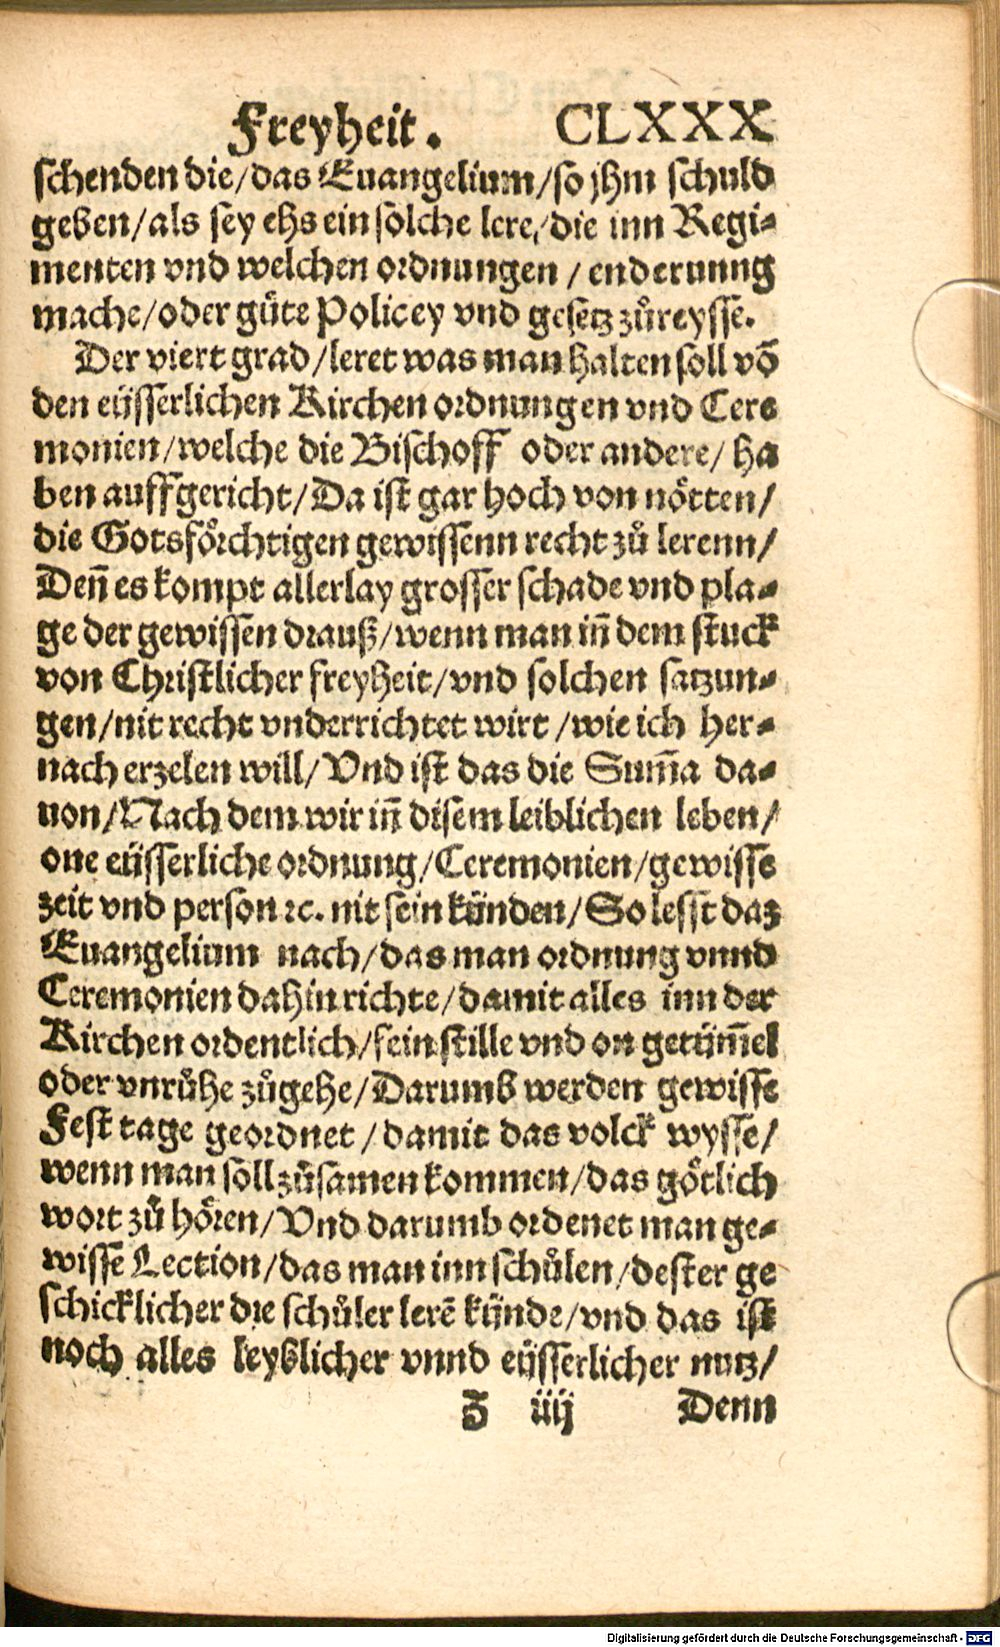 Freyheit. CLXXX
schenden die/das Euangelium/so jhm schuld
geben/als sey ehs ein solche lere/die inn Regi-
menten vnd welchen ordnungen/enderunng
mache/oder gůte Policey vnd gesetz zůreysse.
Der viert grad/leret was man halten soll võ
den eüsserlichen Kirchen ordnungen vnd Cere
monien/welche die Bischoff oder andere/ha
ben auffgericht/Da ist gar hoch von nötten/
die Gotsförchtigen gewissenn recht zů lerenn/
Deñ es kompt allerlay grosser schade vnd pla-
ge der gewissen drauß/wenn man iñ dem stuck
von Christlicher freyheit/vnd solchen satzun-
gen/nit recht vnderrichtet wirt/wie ich her-
nach erzelen will/Vnd ist das die Sum̃a da-
uon/Nach dem wir iñ disem leiblichen leben/
one eüsserliche ordnung/Ceremonien/gewisse
zeit vnd person ꝛc. nit sein künden/So lesst daz
Euangelium nach/das man ordnung vnnd
Ceremonien dahin richte/damit alles inn der
Kirchen ordentlich/fein stille vnd on getüm̃el
oder vnrůhe zůgehe/Darumb werden gewisse
Fest tage geordnet/damit das volck wysse/
wenn man soll zůsamen kommen/das götlich
wort zů hören/Vnd darumb ordenet man ge-
wisse Lection/das man inn schůlen/dester ge
schicklicher die schůler lerẽ künde/vnd das ist
noch alles leyblicher vnnd eüsserlicher nutz/
Z iiij Denn
Digitalisierung gefördert durch die Deutsche Forschungsgemeinschaft - DFG